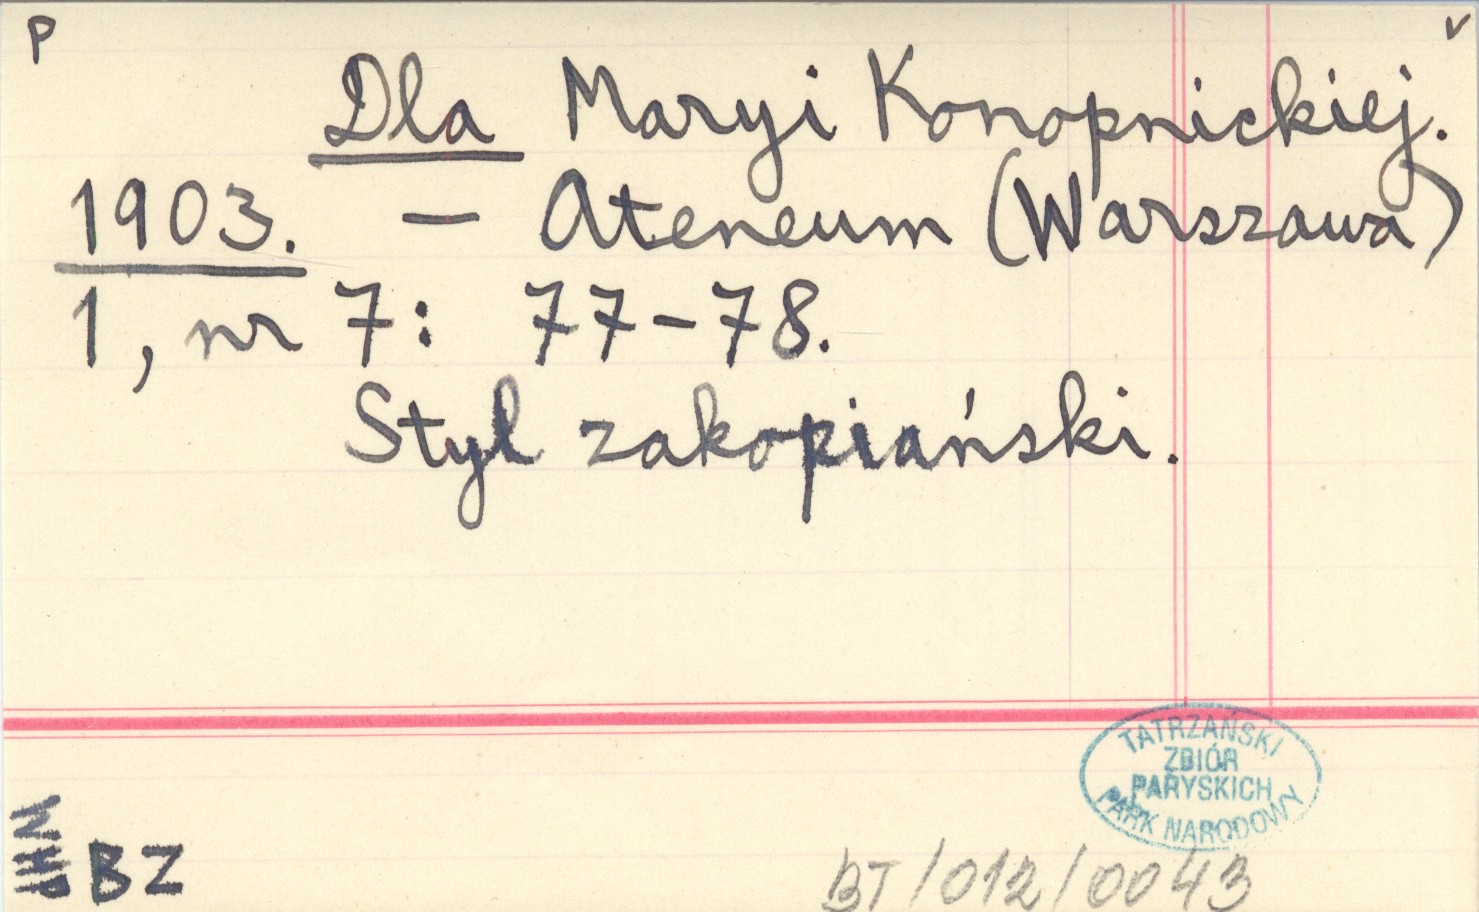 P
v
Dla Maryi Konopnickiej.
1903. — Ateneum (Warszawa)
1, nr 7: 77-78.
Styl zakopiański.
TATRZAŃSKI
ZBIÓR
PARYSKICH
PARK NARODOWY
BZ
BT/012/0043